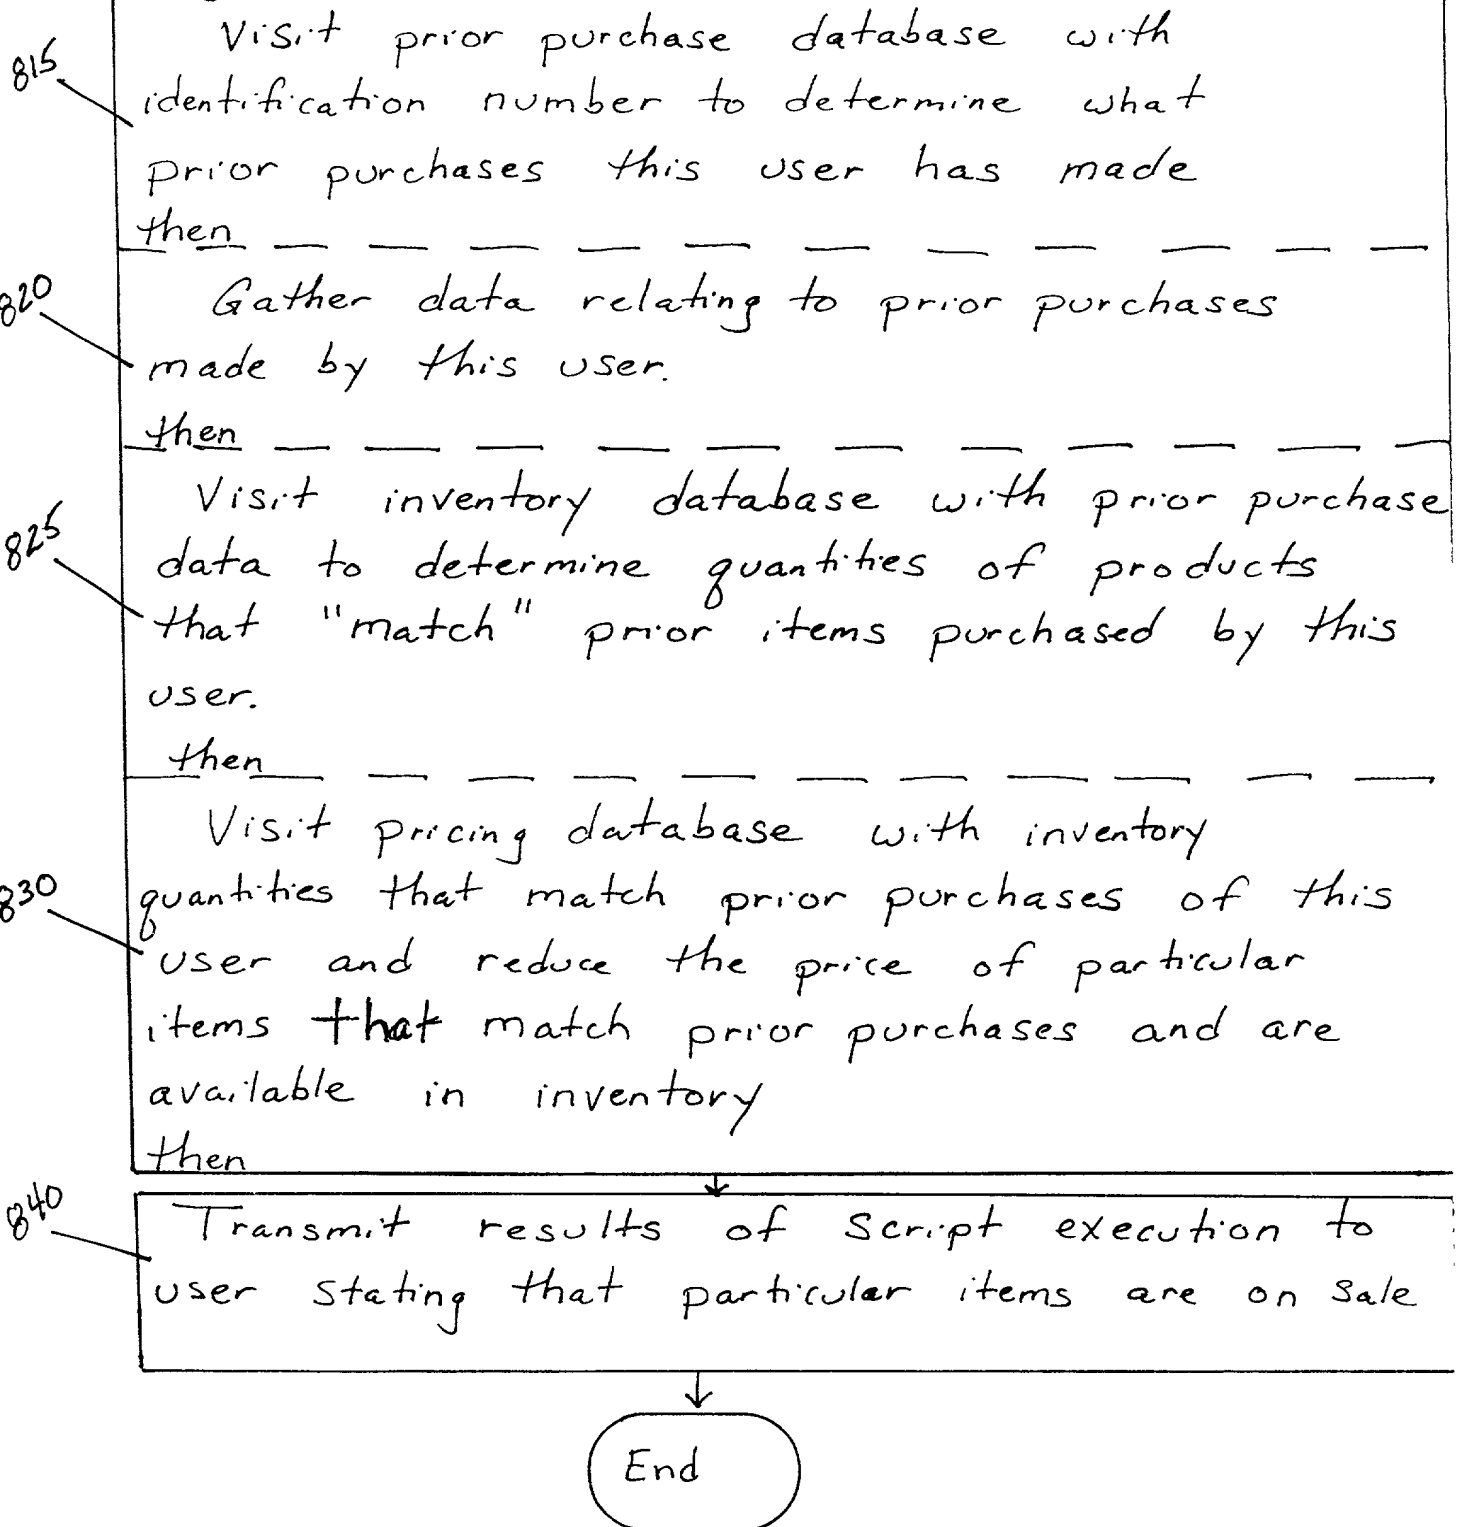 Visit prior purchase database with
815
identification number to determine what
prior purchases this user has made
then
820
Gather data relating to prior purchases
made by this user.
then
Visit inventory database with prior purchase
825
data to determine quantities of products
that "match" prior items purchased by this
user.
then
Visit pricing database with inventory
830
quantities that match prior purchases of this
user and reduce the price of particular
items that match prior purchases and are
available in inventory
then
840
Transmit results of script execution to
user stating that particular items are on sale
End